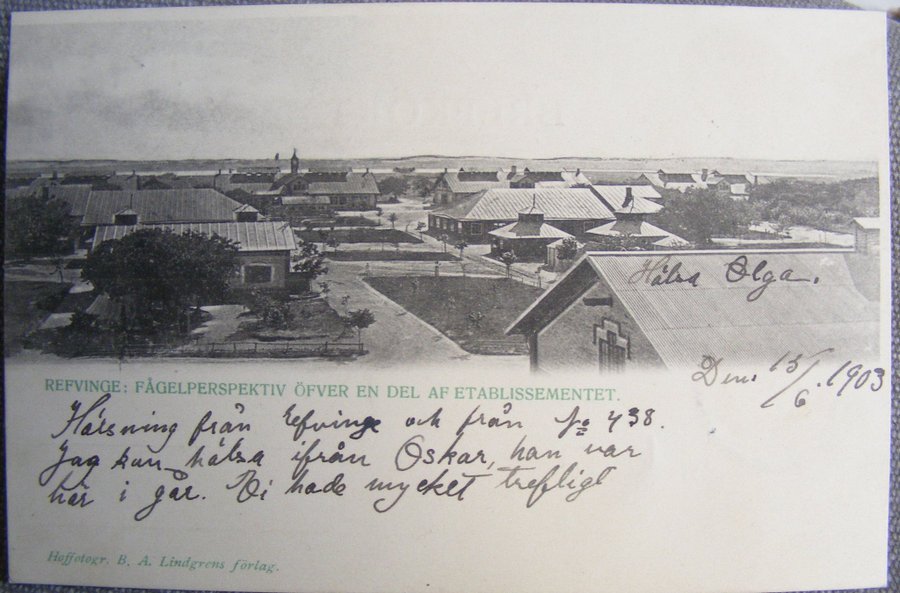 Hälsa Olga.
REFVINGE: FÅGELPERSPEKTIV ÖFVER EN DEL AF ETABLISSEMENTET.
Den. 15/6. 1903
Hälsning från refvinge och från No 438.
Jag kan hälsa ifrån Oskar, han var
här i går. Vi hade mycket trefligt
Hoffotogr. B. A. Lindgrens förlag.